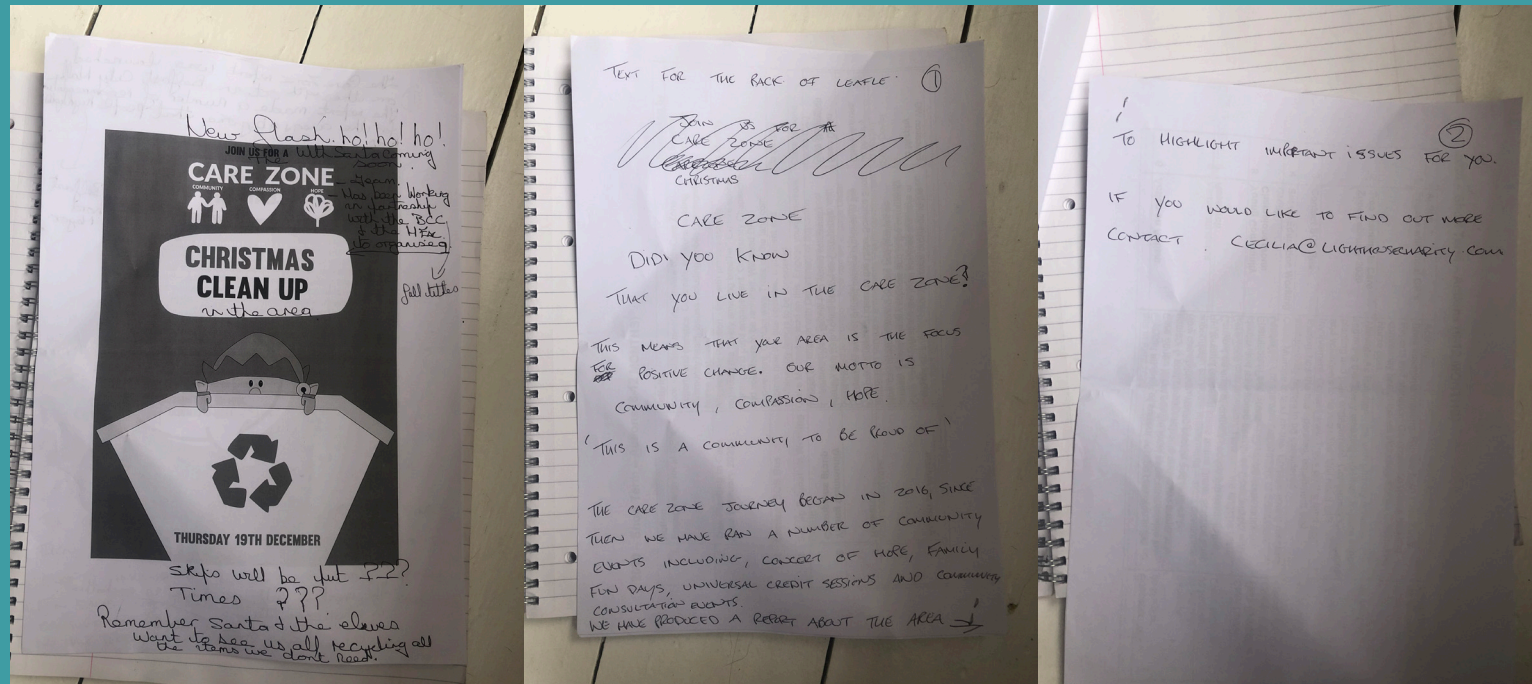 New flash ho! ho! ho!
JOIN US FOR A
with Santa coming
soon.
CARE ZONE
COMMUNITY
COMPASSION
HOPE
- Team.
- Has been working
in partnership
with the BCC
& the
to organise
full titles
CHRISTMAS
CLEAN UP
in the area
THURSDAY 19TH DECEMBER
Skips will be put ???
Times ???
Remember Santa & the elves
want to see us all recycling all
the items we dont need.
TEXT FOR THE BACK OF LEAFLE ①
JOIN US FOR A
CARE ZONE
CHRISTMAS
CARE ZONE
DIDI YOU KNOW
THAT YOU LIVE IN THE CARE ZONE?
THIS MEANS THAT YOUR AREA IS THE FOCUS
FOR POSITIVE CHANGE. OUR MOTTO IS
COMMUNITY, COMPASSION, HOPE.
'THIS IS A COMMUNITY TO BE PROUD OF'
THE CARE ZONE JOURNEY BEGAN IN 2016, SINCE
THEN WE HAVE RAN A NUMBER OF COMMUNITY
EVENTS INCLUDING, CONCERT OF HOPE, FAMILY
FUN DAYS, UNIVERSAL CREDIT SESSIONS AND COMMUNITY
CONSULTATION EVENTS.
WE HAVE PRODUCED A REPORT ABOUT THE AREA
②
TO HIGHLIGHT IMPORTANT ISSUES FOR YOU.
IF YOU WOULD LIKE TO FIND OUT MORE
CONTACT. CECILIA@LIGHTHOUSECHARITY.COM